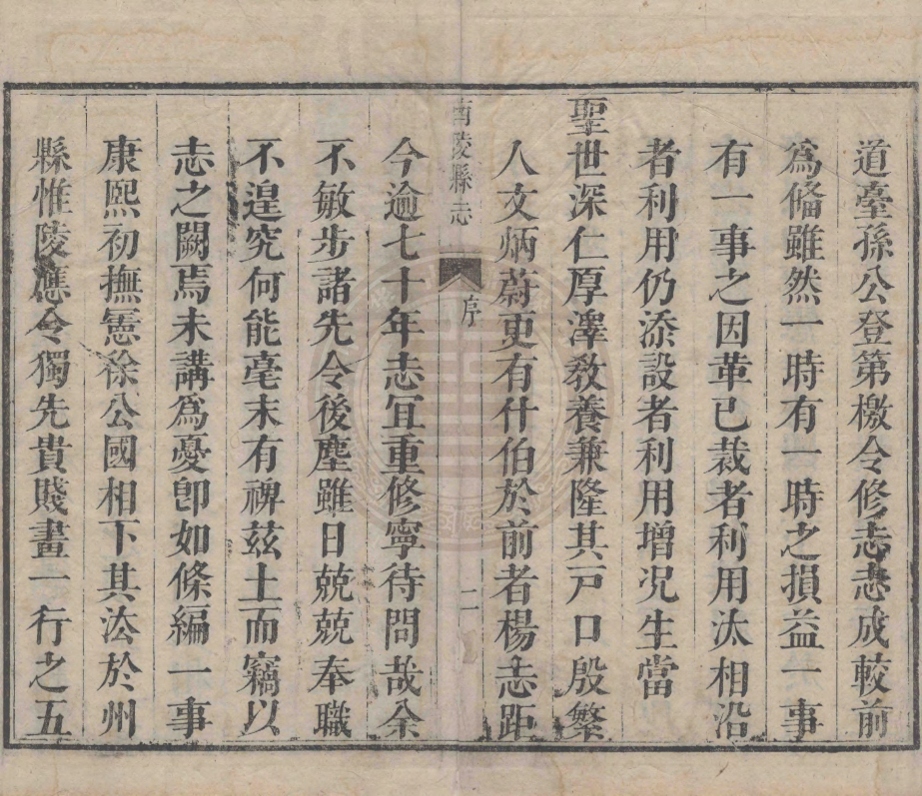 道臺孫公登第檄令修志志成較前
爲俻雖然一時有一時之損益一事
有一事之因革已裁者利用汰相沿
者利用仍添設者利用增况生當
聖世深仁厚澤敎養兼隆其戸口殷繁
人文炳蔚更有什伯於前者楊志距
南陵縣志
序
二
今逾七十年志冝重修寧待問哉余
不敏步諸先令後塵雖日兢兢奉職
不遑究何能毫末有裨茲土而竊以
志之闕焉未講爲憂卽如條編一事
康熙初撫憲徐公國相下其法於州
縣惟陵應令獨先貴賤畫一行之五